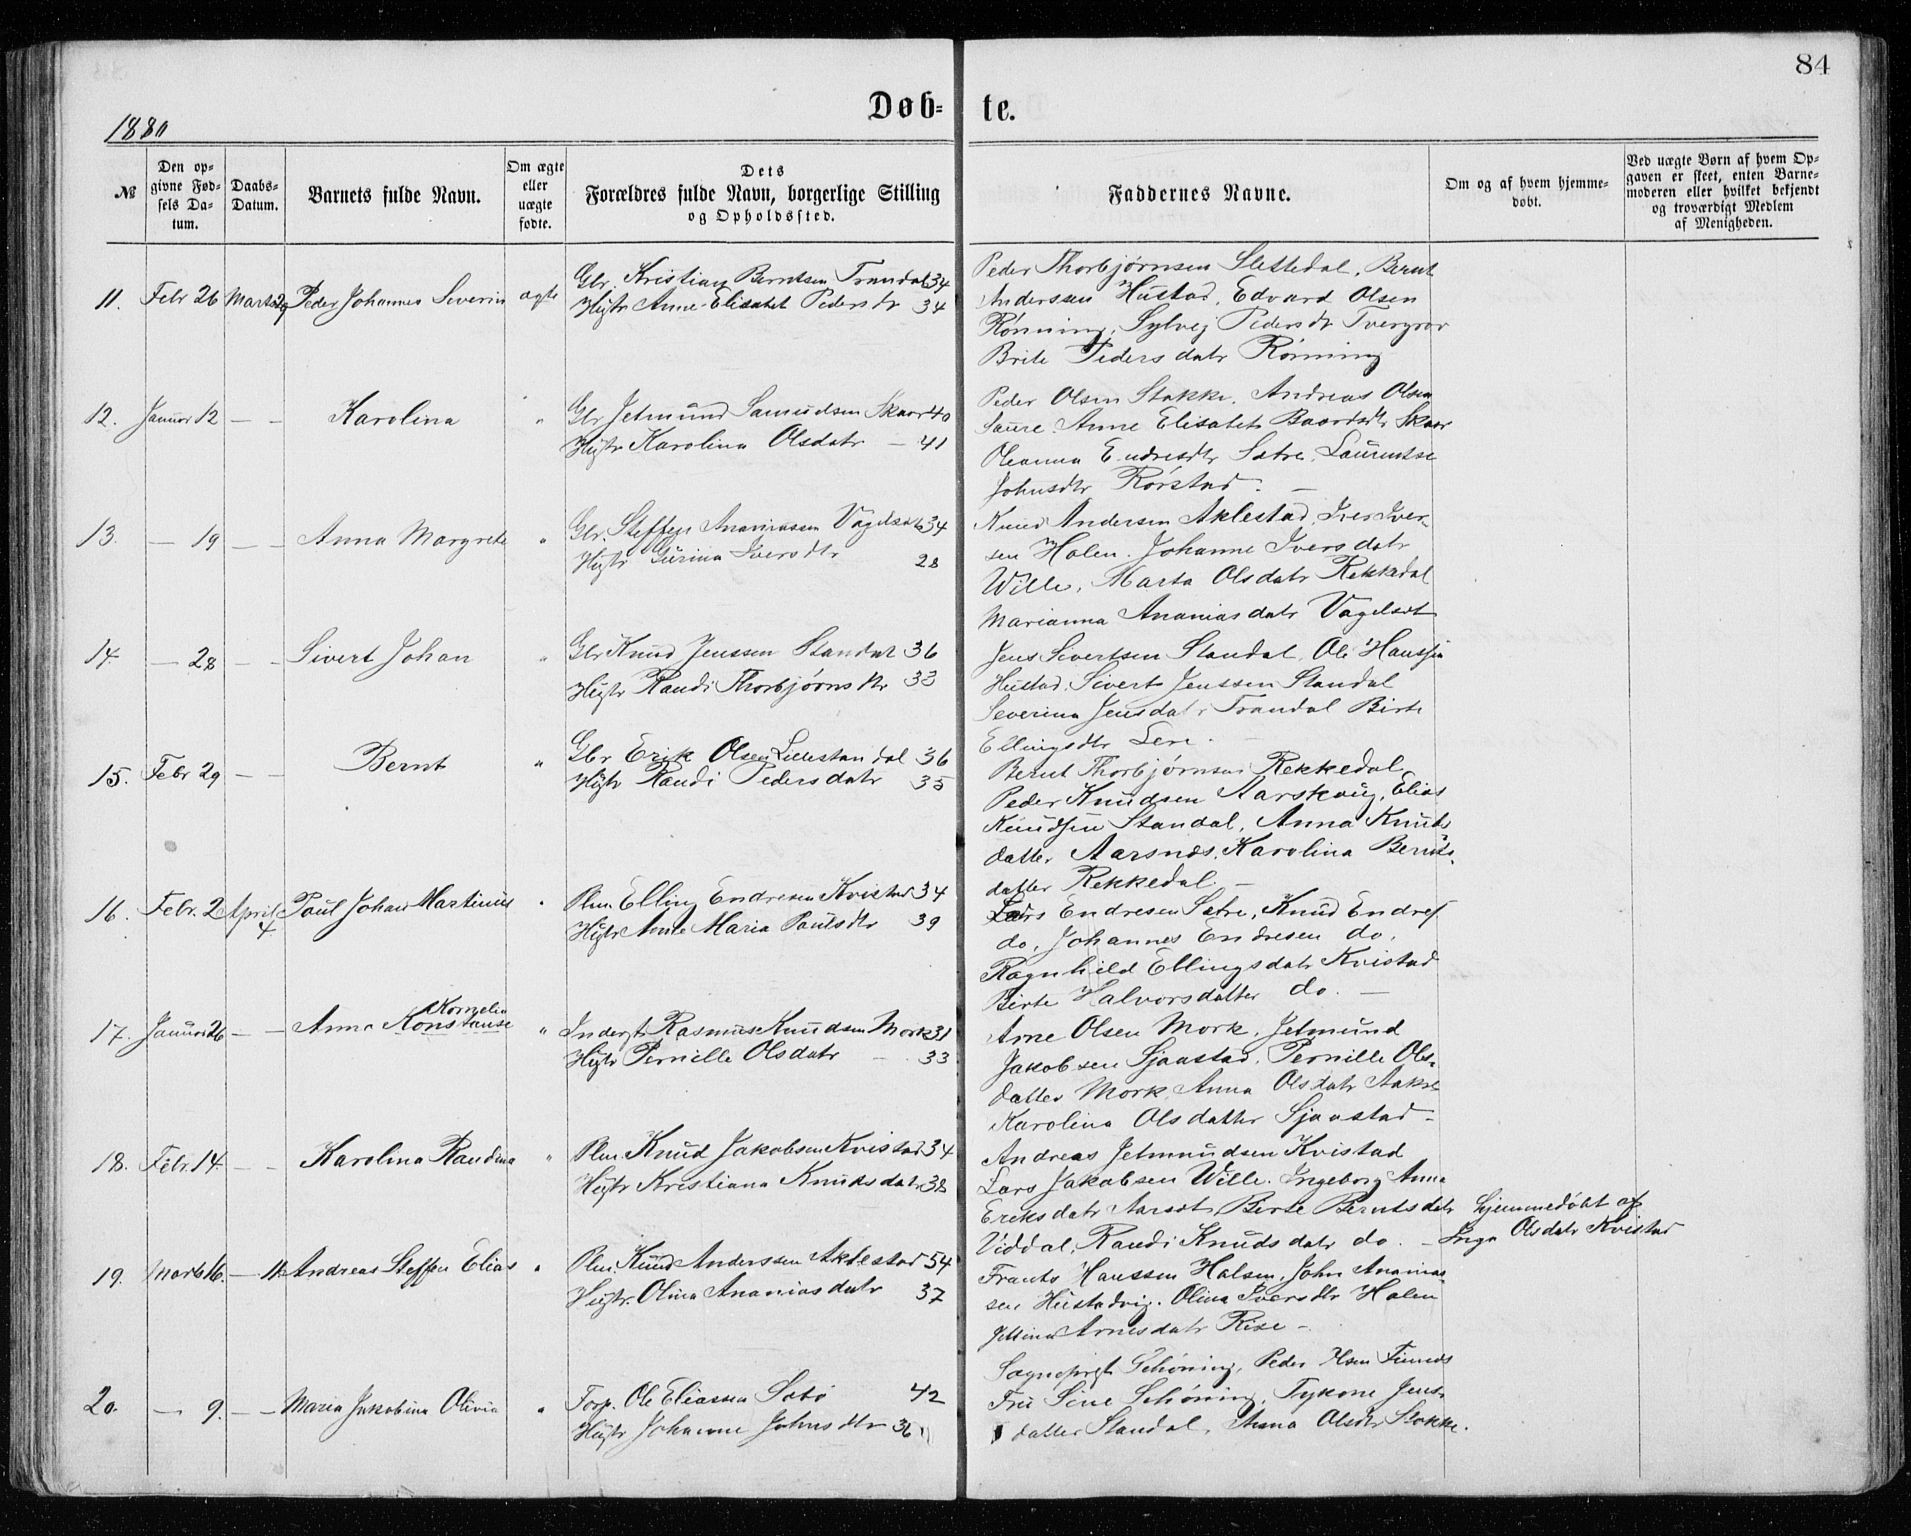 84
Døb-
te.
1880
№
Den op-
givne Fød-
sels Da-
tum.
Daabs-
Datum.
Barnets fulde Navn.
Om ægte
eller
uægte
fødte.
Dets
Forældres fulde Navn, borgerlige Stilling
og Opholdssted.
Faddernes Navne.
Om og af hvem hjemme-
døbt.
Ved uægte Børn af hvem Op-
gaven er skeet, enten Barne-
moderen eller hvilket bekjendt
og troværdigt Medlem
af Menigheden.
11. Febr 26 Marts 29 Peder Johannes Severin ægte
Gbr. Kristian Berntsen Trandal 34
Hustr Anne Elisabet Pedersdtr 34
Peder Thorbjørnsen Slettedal, Bernt
Anderssen Hustad, Edvard Olsen
Rønning, Sylvej Pedersdtr Tvergror
Brite Pedersdatr Rønning
12. Januar 12 — — Karolina "
Gbr Jetmund Samudsen Skaar 40
Hustr Karolina Olsdatr — 41
Peder Olsen Stokke, Andreas Olsen
Saure. Anne Elisabet Baardsdtr Skaar
Oleanna Endresdtr Sætre, Laurentse
Johnsdtr Rørstad. —
13. — 19 — — Anna Margrete "
Gbr. Steffen Ananiassen Vagelsæt 34
Hustr Gurina Iversdtr 28
Knud Andersen Aklestad, Iver Iver-
sen Holen. Johanne Iversdatr
Wille, Marta Olsdatr Rekkedal
Marianna Ananiasdatr Vagelsæt
14 — 28 — — Sivert Johan "
Gbr Knud Jenssen Standal 36
Hustr Randi Thorbjørnsdtr 33
Jens Sivertsen Standal, Ole Hanssen
Hustad, Sivert Jenssen Standal
Severina Jensdatr Trandal Birte
Ellingsdtr Lere. —
15. Febr 29 — — Bernt "
Gbr Erik Olsen Lillestandal 36
Hustr Randi Pedersdatr 35
Bernt Thorbjørnsen Rekkedal
Peder Knudsen Aarskoug, Elias
Knudsen Standal, Anna Knuds-
datter Aarsnes, Karolina Bernts-
datter Rekkedal. —
16. Febr. 2 April 4 Paul Johan Martinus "
Plm Elling Endresen Kvistad 34
Hustr Anne Maria Paulsdtr 39
Lars Endresen Sætre, Knud Endres
do, Johannes Endresen do,
Ragnhild Ellingsdatr Kvistad
Birte Halvorsdatter do. —
17. Januar 26 — — Anna Kornelia
Konstanse "
Inderst Rasmus Knudsen Mork 31
Hustr Pernille Olsdatr — 33
Arne Olsen Mork, Jetmund
Jakobsen Sjaastad, Pernille Ols-
datter Mork, Anna Olsdatr Aakre
Karolina Olsdatter Sjaastad —
18. Febr. 14. — — Karolina Randina "
Plm Knud Jakobsen Kvistad 34
Hustr Kristiana Knudsdatr 38
Andreas Jetmundsen Kvistad
Lars Jakobsen Wille. Ingeborg Anna
Eriksdatr Aarset, Birte Berntsdatr
Viddal, Randi Knudsdatr do. —
Hjemmedøbt af
Inga Olsdatr Kvistad
19. Marts 16. — 11. Andreas Steffen Elias "
Plm. Knud Anderssen Aklestad 54
Hustr. Olina Ananiasdatr 37
Frants Hanssen Halsen, John Ananias-
sen Hustadvig. Olina Iversdtr Holen
Arnesdatr Rise —
20. — 9. — — Maria Jakobina Olivia "
Forp. Ole Eliassen Sætø 42
Hustr Johanne Johnsdtr 36
Sogneprest Schøning, Peder Olsen
Fru Sine Schøning, Jens-
datter Standal, Anna Olsdtr Stokke.